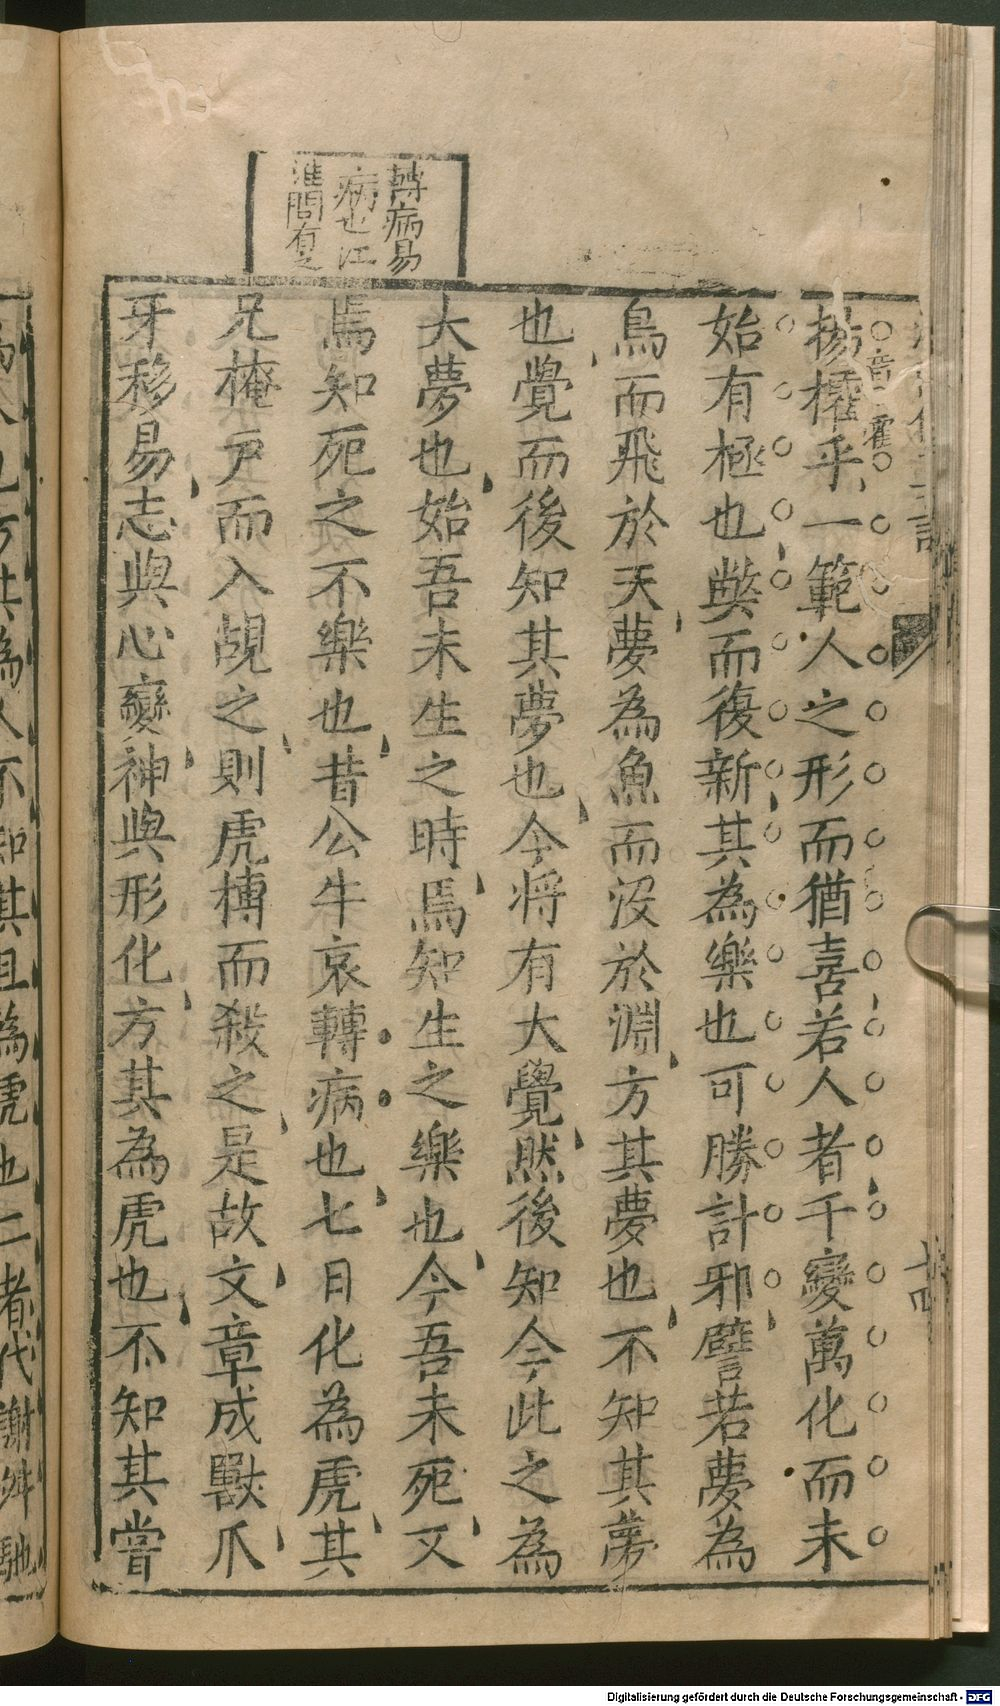 轉病易
病也江
淮間有之
音霍
揚㩁乎一範人之形而猶喜若人者千變萬化而未
始有極也獘而復新其為樂也可勝計邪譬若夢為
鳥而飛於天夢為魚而沒於淵方其夢也不知其夢
也覺而後知其夢也今将有大覺然後知今此之為
大夢也始吾未生之時焉知生之樂也今吾未死又
焉知死之不樂也昔公牛哀轉病也七日化為虎其
兄掩户而入覘之則虎搏而殺之是故文章成獸爪
牙移易志與心變神與形化方其為虎也不知其嘗
十四
為人也方其為人不知其且為虎也二者代謝舛馳
Digitalisierung gefördert durch die Deutsche Forschungsgemeinschaft - DFG